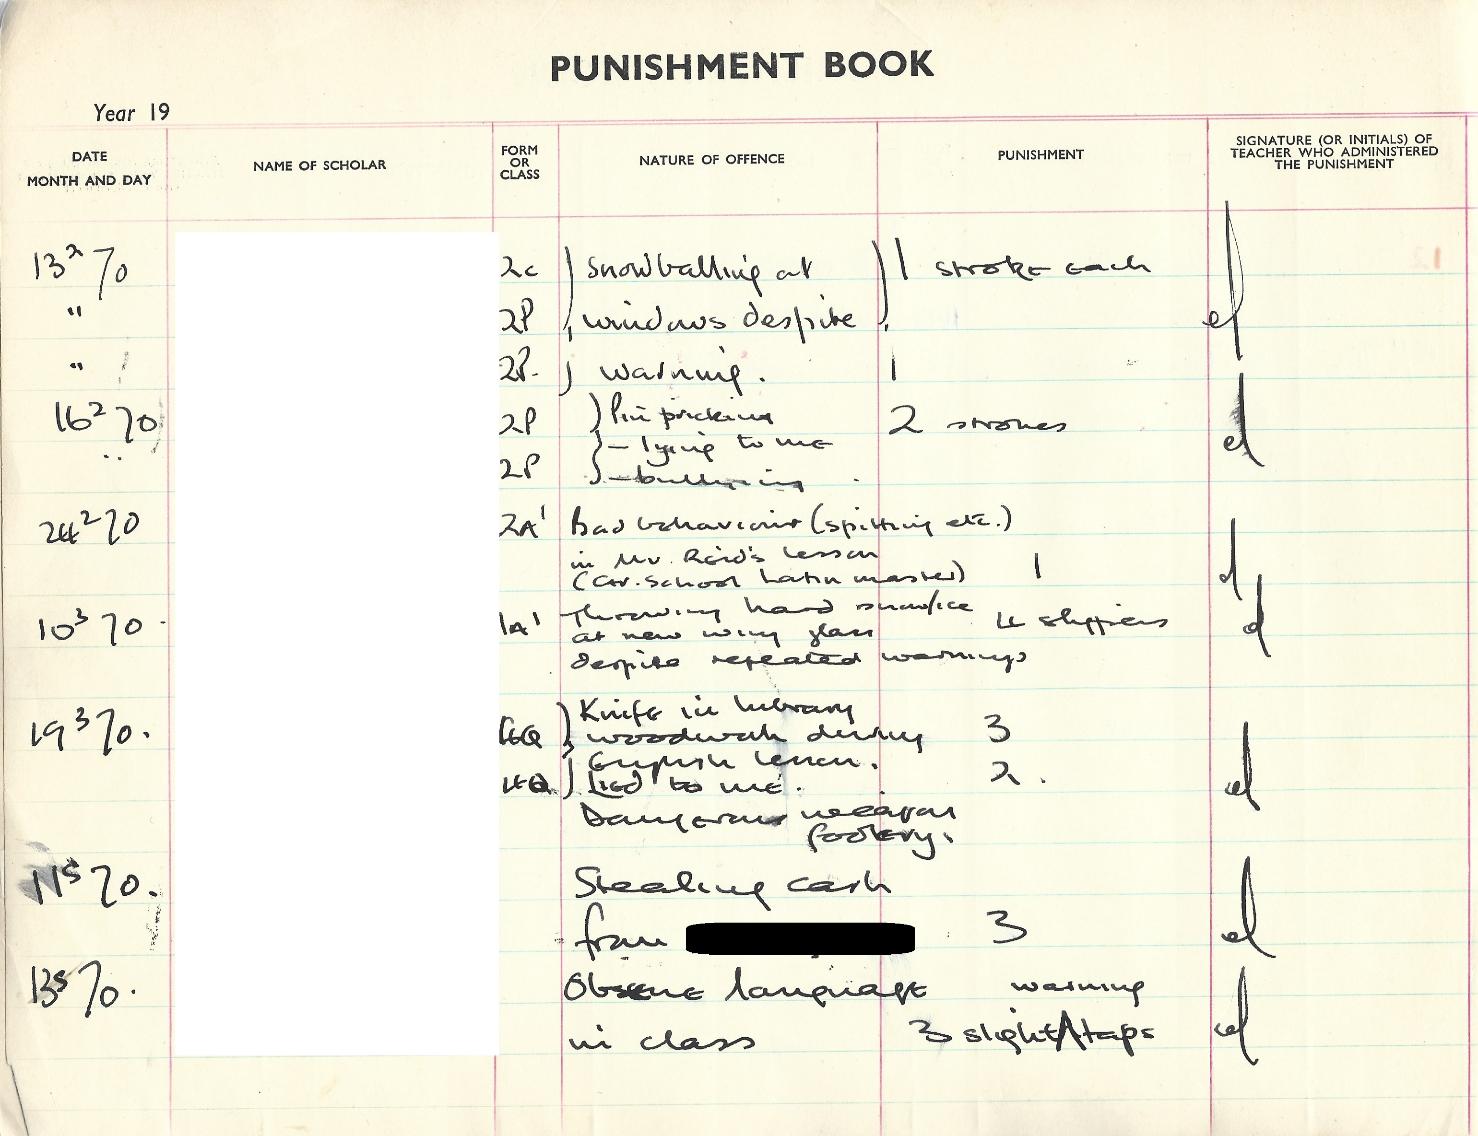 PUNISHMENT BOOK
Year 19
DATE
MONTH AND DAY
NAME OF SCHOLAR
FORM
OR
CLASS
NATURE OF OFFENCE
PUNISHMENT
SIGNATURE (OR INITIALS) OF
TEACHER WHO ADMINISTERED
THE PUNISHMENT
13 2 70 2c snowballing at 1 stroke each
" 2P windows despite
" 2P. warning. 1
16 2 70 2P Pin pricking 2 strokes
- lying to me
" 2P - bullying
24 2 70 2A1 Bad behaviour (spitting etc.)
in Mr. Reid's lesson
(Gr. School Latin master) 1
10 3 70 1A1 Throwing hard snow/ice 4 slippers
at new wing glass
despite repeated warnings
19 3 70. Knife in library
4Q woodwork during 3
English lesson.
4Q Lied to me. 2.
Dangerous weapon
foolery.
11 5 70. Stealing cash
from 3
13 5 70. Obscene language warning
in class 3 slight taps